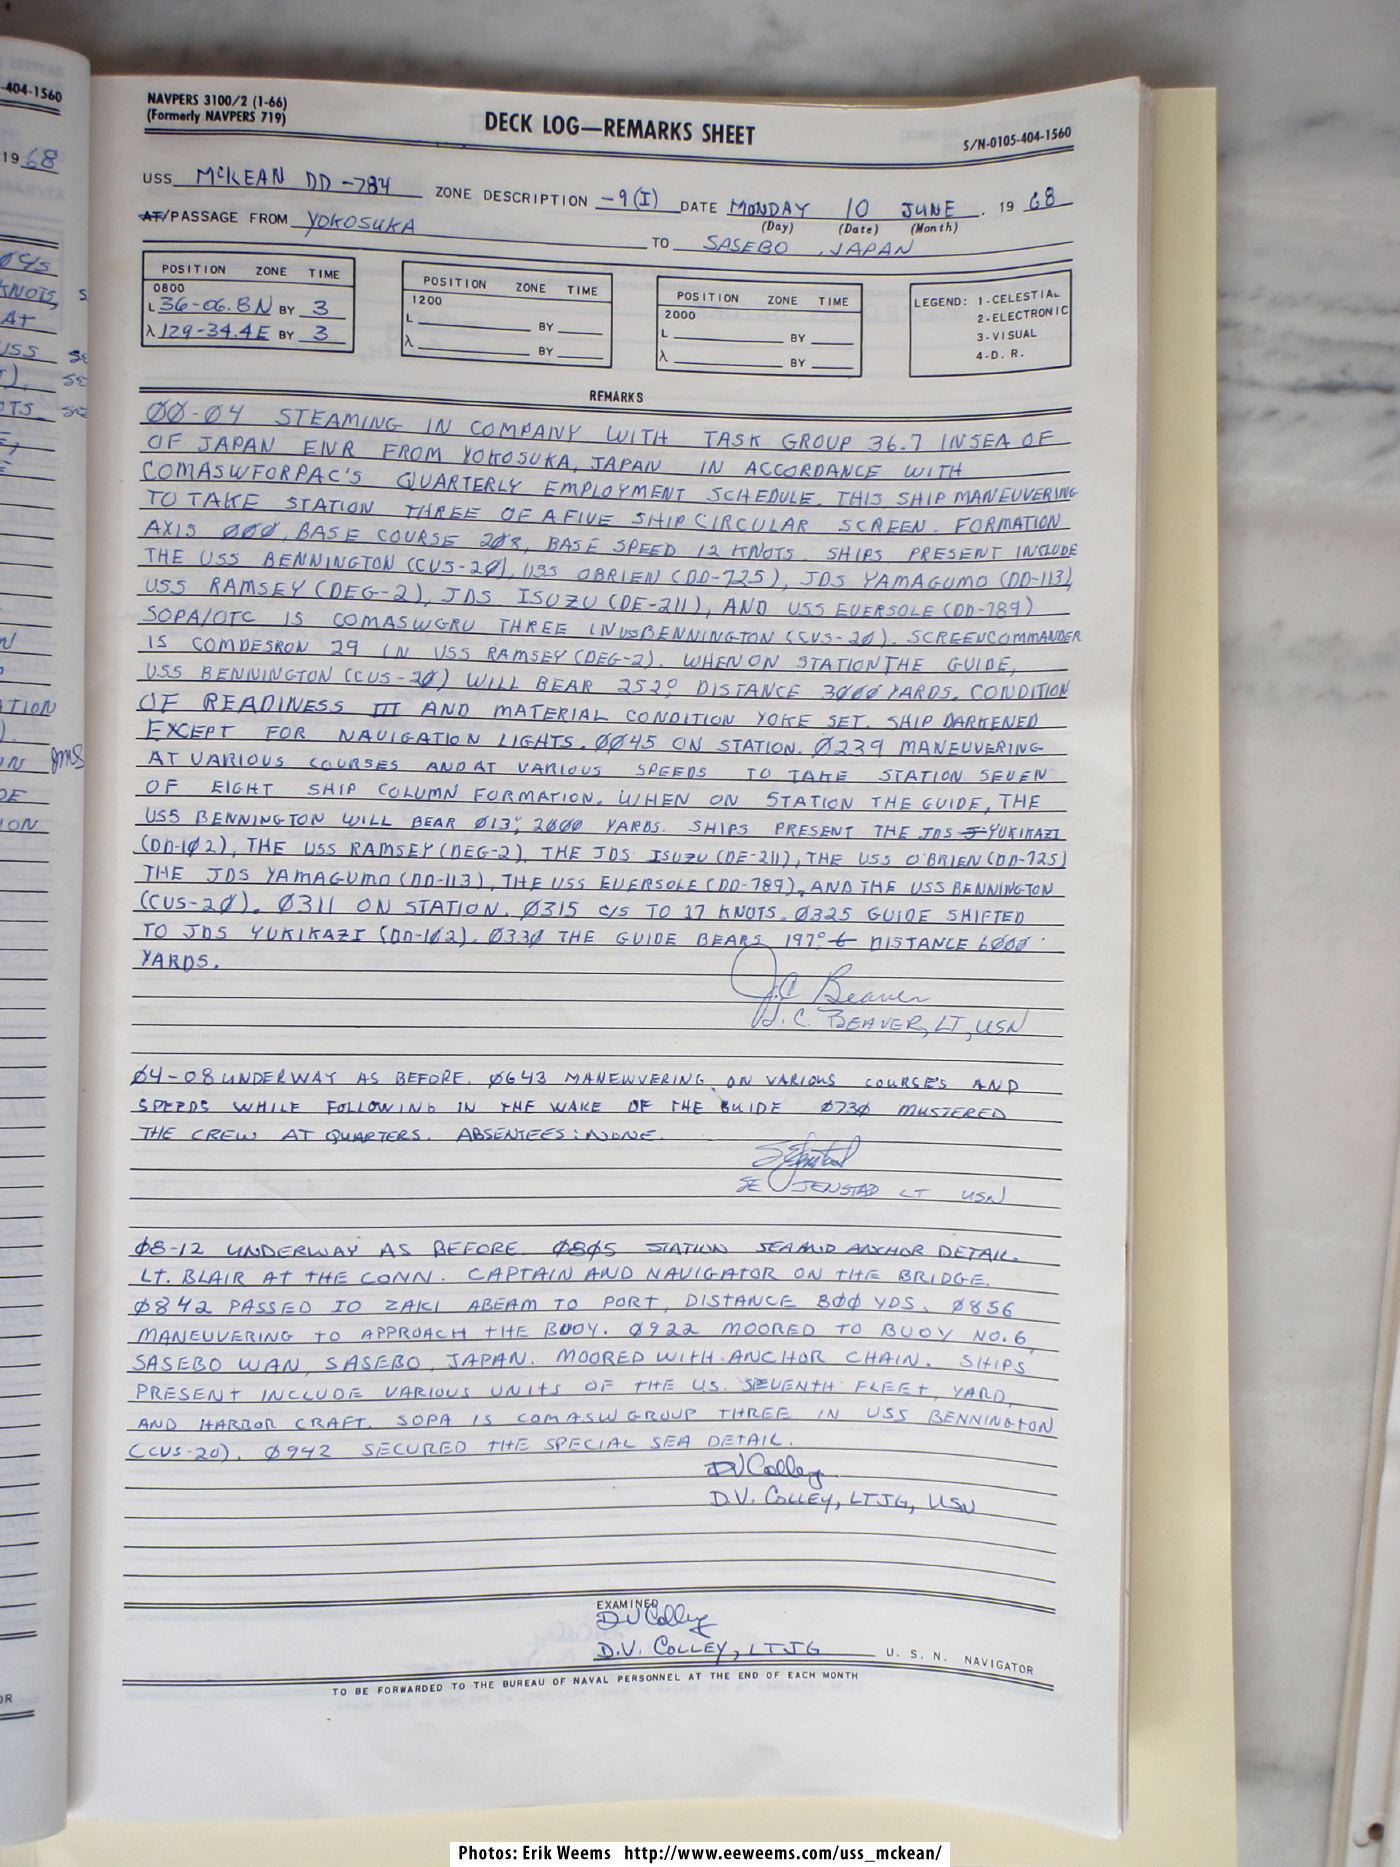 -404-1560
19 68
NAVPERS 3100/2 (1-66)
(Formerly NAVPERS 719)
DECK LOG—REMARKS SHEET
S/N-0105-404-1560
USS McKEAN DD-784 ZONE DESCRIPTION -9(I) DATE MONDAY 10 JUNE, 19 68
(Day) (Date) (Month)
AT/PASSAGE FROM YOKOSUKA TO SASEBO, JAPAN
POSITION ZONE TIME
0800
L 36-06.8N BY 3
λ 129-34.4E BY 3
POSITION ZONE TIME
1200
L BY
λ BY
POSITION ZONE TIME
2000
L BY
λ BY
LEGEND: 1-CELESTIAL
2-ELECTRONIC
3-VISUAL
4-D. R.
REMARKS
00-04 STEAMING IN COMPANY WITH TASK GROUP 36.7 IN SEA OF
OF JAPAN ENR FROM YOKOSUKA, JAPAN IN ACCORDANCE WITH
COMASWFORPAC'S QUARTERLY EMPLOYMENT SCHEDULE. THIS SHIP MANEUVERING
TO TAKE STATION THREE OF A FIVE SHIP CIRCULAR SCREEN. FORMATION
AXIS 000, BASE COURSE 208, BASE SPEED 12 KNOTS. SHIPS PRESENT INCLUDE
THE USS BENNINGTON (CVS-20), USS OBRIEN (DD-725), JDS YAMAGUMO (DD-113),
USS RAMSEY (DEG-2), JDS ISUZU (DE-211), AND USS EVERSOLE (DD-789)
SOPA/OTC IS COMASWGRU THREE IN USS BENNINGTON (CVS-20). SCREEN COMMANDER
IS COMDESRON 29 IN USS RAMSEY (DEG-2). WHEN ON STATION THE GUIDE,
USS BENNINGTON (CVS-20) WILL BEAR 252°, DISTANCE 3000 YARDS. CONDITION
OF READINESS III AND MATERIAL CONDITION YOKE SET. SHIP DARKENED
EXCEPT FOR NAVIGATION LIGHTS. 0045 ON STATION. 0239 MANEUVERING
AT VARIOUS COURSES AND AT VARIOUS SPEEDS TO TAKE STATION SEVEN
OF EIGHT SHIP COLUMN FORMATION. WHEN ON STATION THE GUIDE, THE
USS BENNINGTON WILL BEAR 013°, 2000 YARDS. SHIPS PRESENT THE JDS YUKIKAZI
(DD-102), THE USS RAMSEY (DEG-2), THE JDS ISUZU (DE-211), THE USS O'BRIEN (DD-725)
THE JDS YAMAGUMO (DD-113), THE USS EVERSOLE (DD-789), AND THE USS BENNINGTON
(CVS-20). 0311 ON STATION. 0315 C/S TO 17 KNOTS. 0325 GUIDE SHIFTED
TO JDS YUKIKAZI (DD-102). 0330 THE GUIDE BEARS 197° DISTANCE 6000
YARDS.
J.C Beaver
J. C. BEAVER, LT, USN
04-08 UNDERWAY AS BEFORE. 0643 MANEWVERING ON VARIOUS COURSE'S AND
SPEEDS WHILE FOLLOWING IN THE WAKE OF THE GUIDE 0730 MUSTERED
THE CREW AT QUARTERS. ABSENTEES: NONE.
SE JENSTAD LT USN
08-12 UNDERWAY AS BEFORE. 0805 STATION SEA AND ANCHOR DETAIL.
LT. BLAIR AT THE CONN. CAPTAIN AND NAVIGATOR ON THE BRIDGE.
0842 PASSED IO ZAKI ABEAM TO PORT, DISTANCE 800 YDS. 0856
MANEUVERING TO APPROACH THE BUOY. 0922 MOORED TO BUOY NO. 6,
SASEBO WAN, SASEBO, JAPAN. MOORED WITH ANCHOR CHAIN. SHIPS
PRESENT INCLUDE VARIOUS UNITS OF THE US. SEVENTH FLEET, YARD,
AND HARBOR CRAFT. SOPA IS COMASW GROUP THREE IN USS BENNINGTON
(CVS-20). 0942 SECURED THE SPECIAL SEA DETAIL.
DV Colley
D.V. COLLEY, LTJG, USN
EXAMINED
DV Colley
D.V. COLLEY, LTJG U. S. N. NAVIGATOR
TO BE FORWARDED TO THE BUREAU OF NAVAL PERSONNEL AT THE END OF EACH MONTH
Photos: Erik Weems http://www.eeweems.com/uss_mckean/